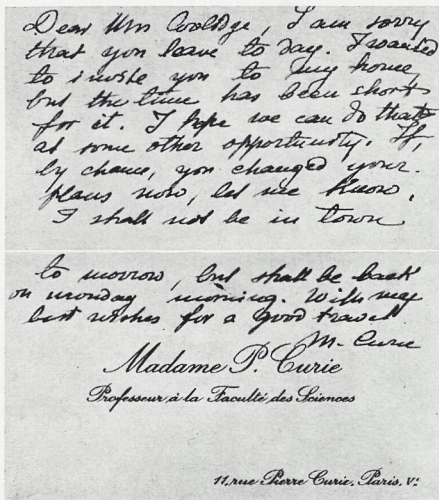 Dear Mrs Coolidge, I am sorry
that you leave to day. I wanted
to invite you to my home,
but the time has been short
for it. I hope we can do that
at some other opportunity. If,
by chance, you changed your
plans now, let me know.
I shall not be in town
to morrow, but shall be back
on monday morning. With my
best wishes for a good travel
M. Curie
Madame P. Curie
Professeur à la Faculté des Sciences
11, rue Pierre Curie. Paris. Ve